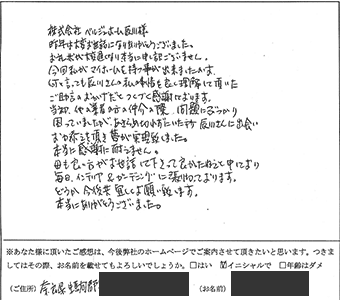 株式会社 ベルジュホーム 辰川様
昨年は大変お世話になりありがとうございました。
お礼状が大変遅くなり本当に申し訳ございません。
今回私がマイホームを持つ事が出来ましたのは、
何と言っても辰川さんの私の事情を良く理解して頂いた
ご助言のおかげだとつくづく感謝しております。
当初、他の業者の方の仲介の際、問題にぶつかり
困っていましたが、あきらめの境地でいた時 辰川さんに出会い
お力添えを頂き夢が実現致しました。
本当に感謝に耐えません。
母も良い方がお世話して下さって良かったねと申しており
毎日、インテリア&ガーデニングに張り切っております。
どうか今後共宜しくお願い致します。
本当にありがとうございました。
※あなた様に頂いたご感想は、今後弊社のホームページでご案内させて頂きたいと思います。つきま
してはその際、お名前を載せてもよろしいでしょうか。□はい ☑イニシャルで □年齢はダメ
(ご住所) 奈良県生駒郡
(お名前)